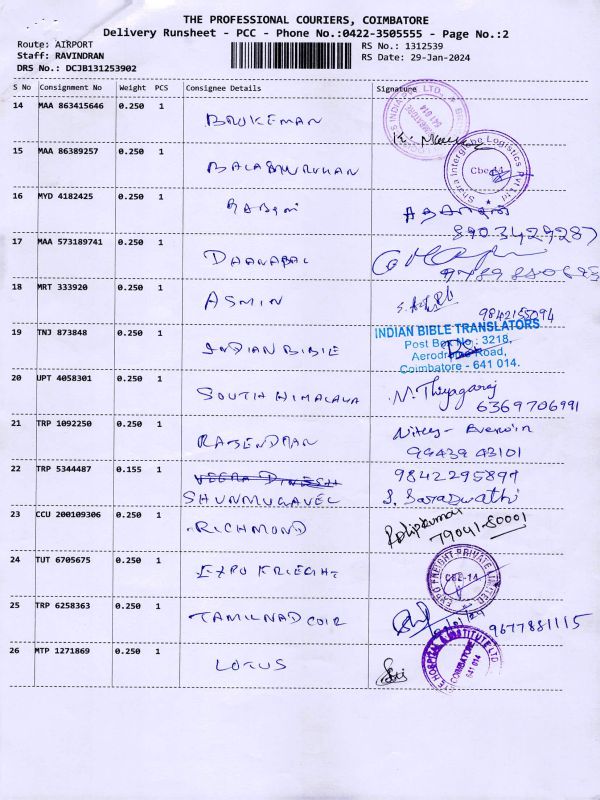 THE PROFESSIONAL COURIERS, COIMBATORE
Delivery Runsheet - PCC - Phone No.:0422-3505555 - Page No.:2
Route: AIRPORT RS No.: 1312539
Staff: RAVINDRAN RS Date: 29-Jan-2024
DRS No.: DCJB131253902
S No Consignment No Weight PCS Consignee Details Signature
14 MAA 863415646 0.250 1 BRUKEMAN
15 MAA 86389257 0.250 1 BALAMURUHAN
Shara Interglobe Logistics Pvt Ltd
16 MYD 4182425 0.250 1
8903429287
17 MAA 573189741 0.250 1 DHANABAL
18 MRT 333920 0.250 1 ASMIN
9842155094
19 TNJ 873848 0.250 1 INDIAN BIBLE
INDIAN BIBLE TRANSLATORS
Post Box No.: 3218,
Aerodrome Road,
Coimbatore - 641 014.
20 UPT 4058301 0.250 1 SOUTH HIMALAYA N. Thiyagaraj
6369706991
21 TRP 1092250 0.250 1 RAJENDRAN
99439 43101
22 TRP 5344487 0.155 1 VEERA DINESH 9842295897
SHUNMUGAVEL S. Saraswathi
23 CCU 200109306 0.250 1 RICHMOND Dilipkumar
79041-80001
24 TUT 6705675 0.250 1 EXPO FRIEGHT
EXPO FREIGHT PRIVATE LIMITED
CBE-14
25 TRP 6258363 0.250 1 TAMILNAD COIR
9677881115
26 MTP 1271869 0.250 1 LOTUS
EYE HOSPITAL & INSTITUTE LTD.
COIMBATORE
641 014